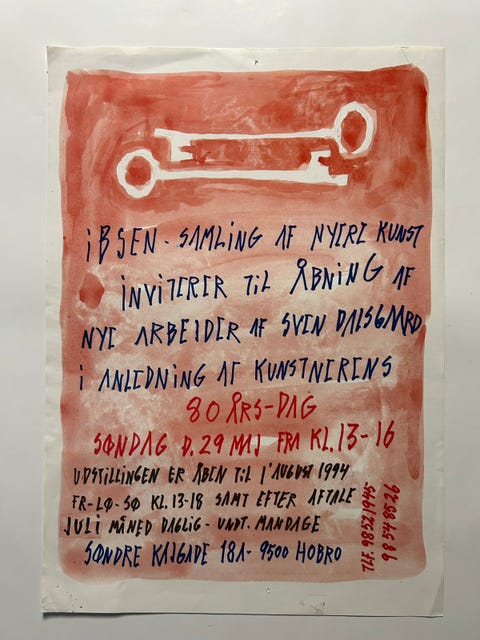 iBSEN - SAMLING AF NYERE KUNST
INVITERER TIL ÅBNING AF
NYE ARBEJDER AF SVEN DALSGAARD
i ANLEDNING AF KUNSTNERENS
80 ÅRS-DAG
SØNDAG D. 29 MAJ FRA KL. 13-16
UDSTILLINGEN ER ÅBEN TIL 1' AUGUST 1994
FR-LØ-SØ KL. 13-18 SAMT EFTER AFTALE
JULI MÅNED DAGLIG - UNDT. MANDAGE
SØNDRE KAJGADE 18A - 9500 HOBRO
TLF. 98521945
98548526